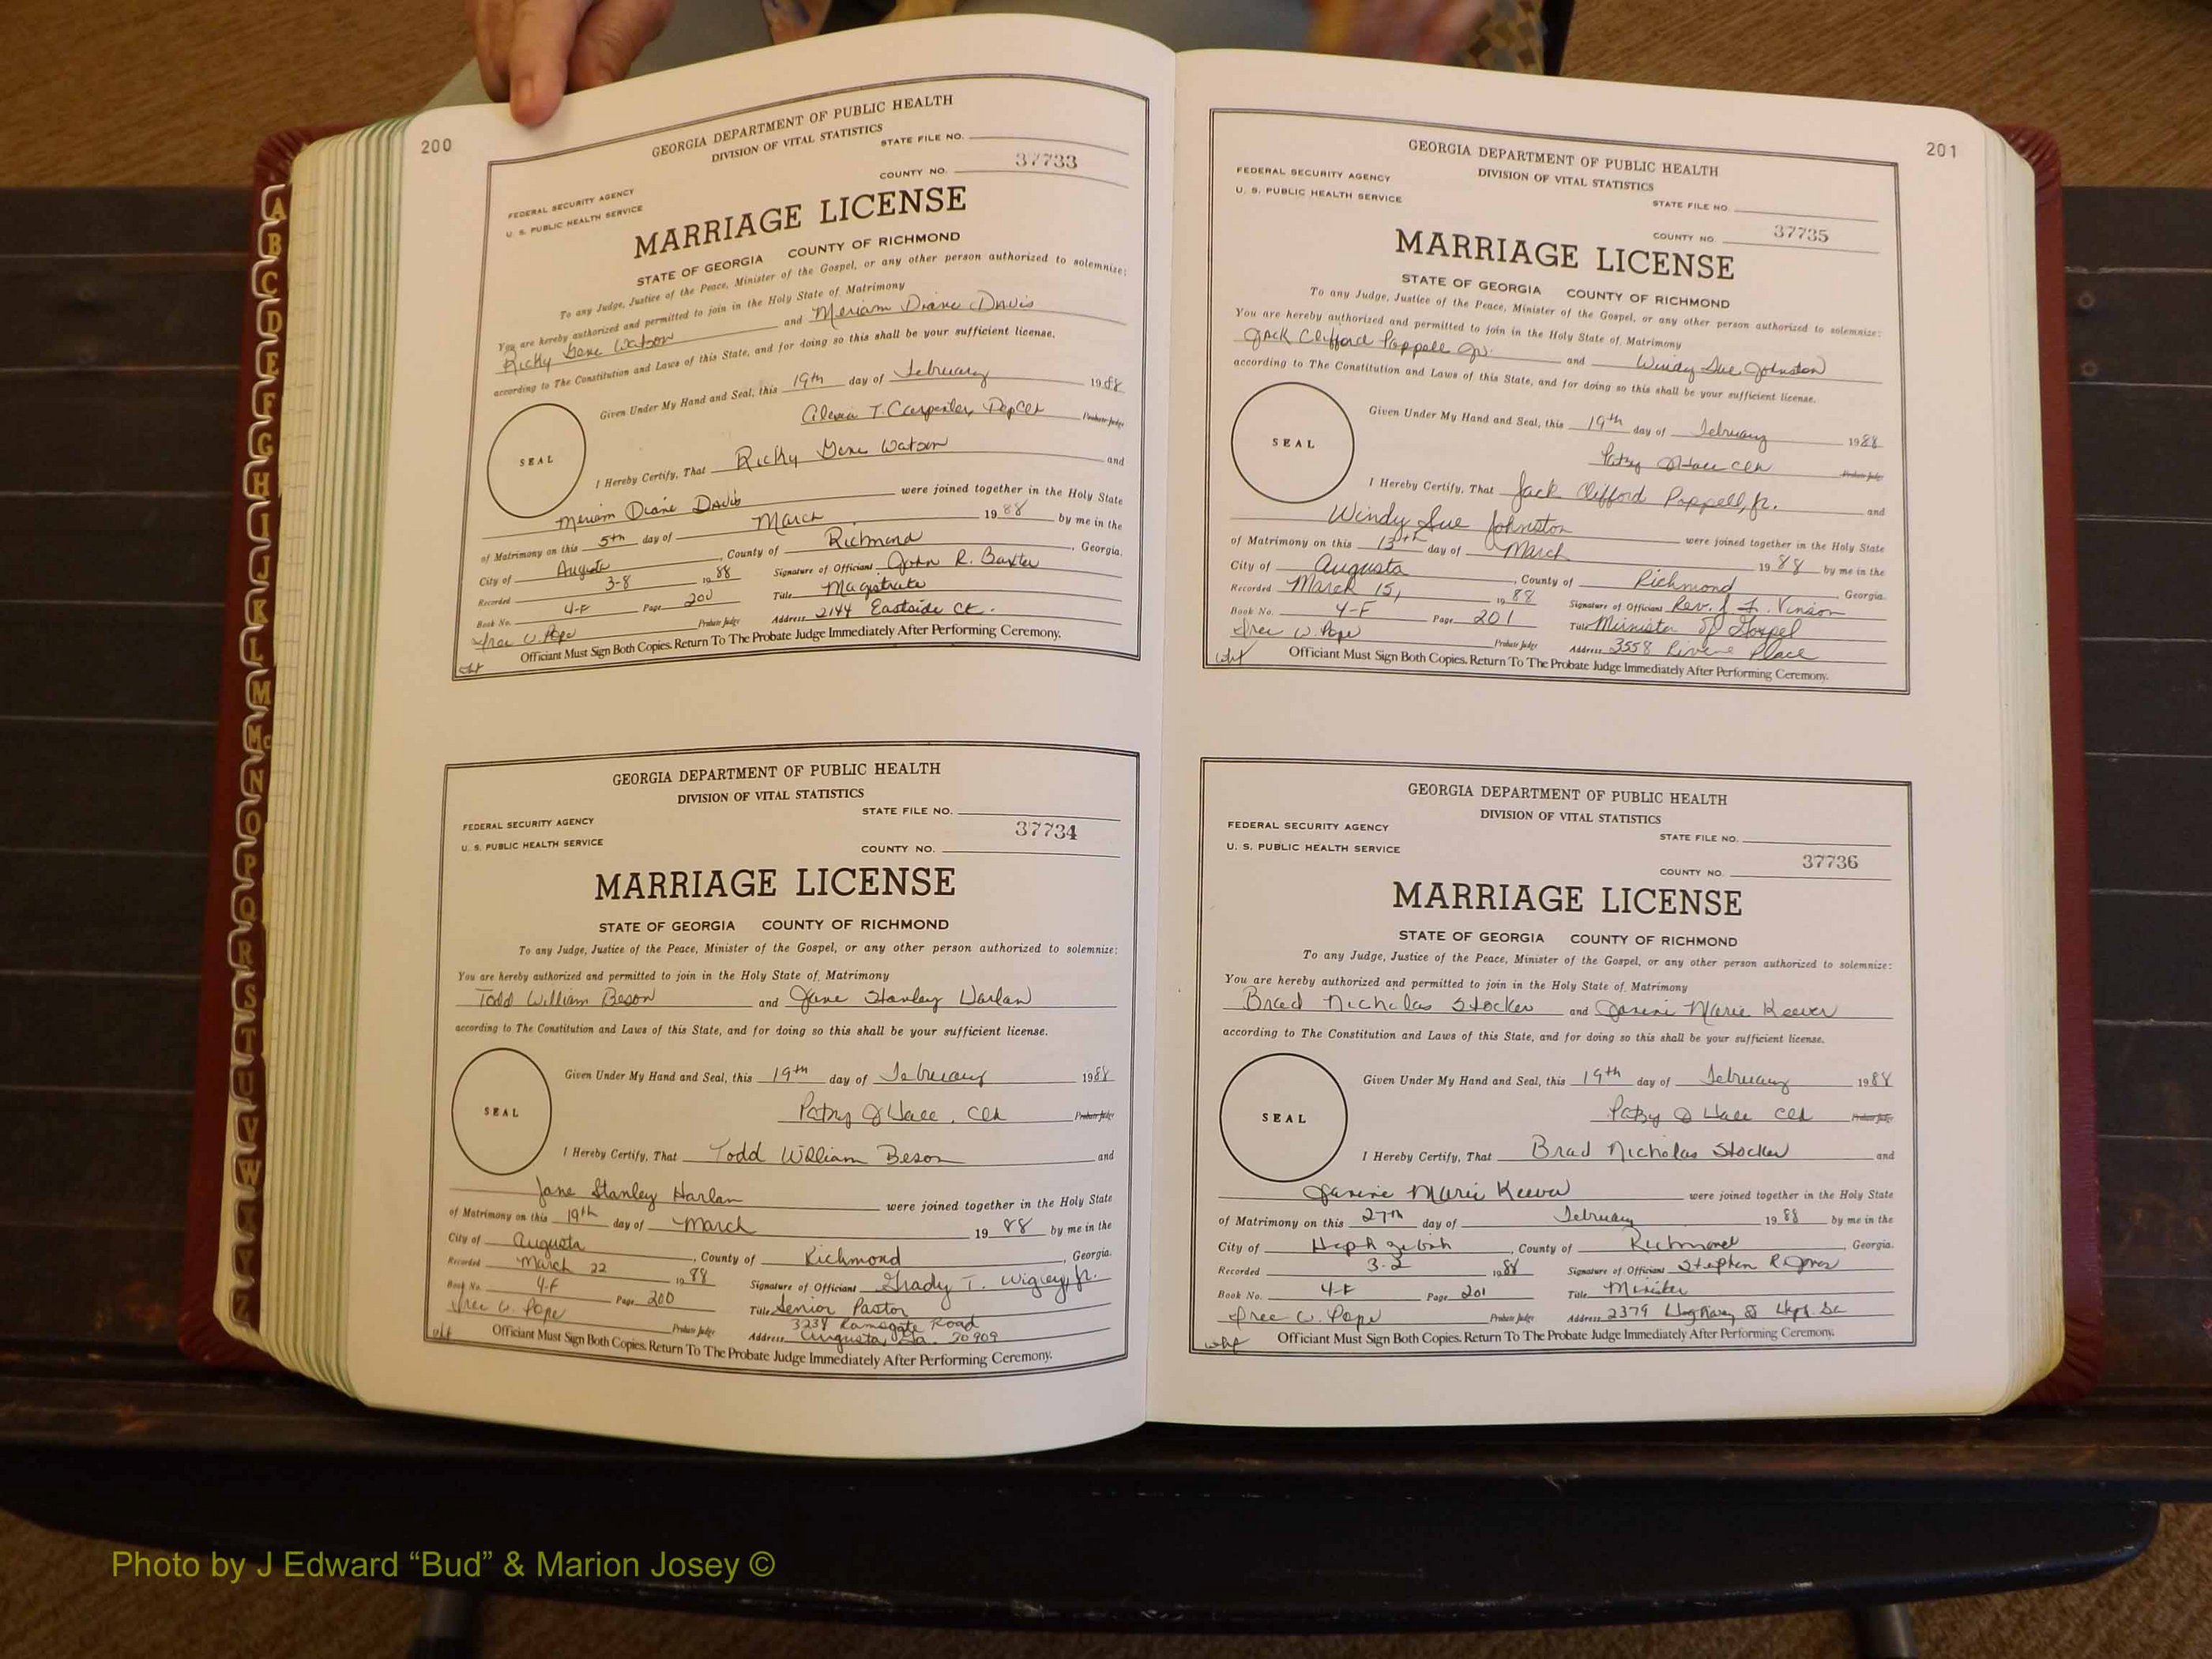 200
GEORGIA DEPARTMENT OF PUBLIC HEALTH
DIVISION OF VITAL STATISTICS
STATE FILE NO.
37733
COUNTY NO.
FEDERAL SECURITY AGENCY
U. S. PUBLIC HEALTH SERVICE
MARRIAGE LICENSE
STATE OF GEORGIA COUNTY OF RICHMOND
To any Judge, Justice of the Peace, Minister of the Gospel, or any other person authorized to solemnize:
You are hereby authorized and permitted to join in the Holy State of Matrimony
Ricky Gene Watson and Meriam Diane Davis
according to The Constitution and Laws of this State, and for doing so this shall be your sufficient license.
Given Under My Hand and Seal, this 19th day of February 1988
T. Carpenter, Dep Clk Probate Judge
SEAL
I Hereby Certify, That Ricky Gene Watson and
Meriam Diane Davis were joined together in the Holy State
of Matrimony on this 5th day of March 1988 by me in the
City of Augusta, County of Richmond, Georgia.
Recorded 3-8 1988 Signature of Officiant John R. Baxter
Book No. 4-F Page 200 Title Magistrate
Address 2144 Eastside Ct.
W. Pope Probate Judge
Officiant Must Sign Both Copies. Return To The Probate Judge Immediately After Performing Ceremony.
GEORGIA DEPARTMENT OF PUBLIC HEALTH
DIVISION OF VITAL STATISTICS
STATE FILE NO.
FEDERAL SECURITY AGENCY
37734
U. S. PUBLIC HEALTH SERVICE
COUNTY NO.
MARRIAGE LICENSE
STATE OF GEORGIA COUNTY OF RICHMOND
To any Judge, Justice of the Peace, Minister of the Gospel, or any other person authorized to solemnize:
You are hereby authorized and permitted to join in the Holy State of Matrimony
Todd William Beson and Jane Stanley Harlan
according to The Constitution and Laws of this State, and for doing so this shall be your sufficient license.
Given Under My Hand and Seal, this 19th day of February 1988
Patsy Clk Probate Judge
SEAL
I Hereby Certify, That Todd William Beson and
Jane Stanley Harlan were joined together in the Holy State
of Matrimony on this 19th day of March 1988 by me in the
City of Augusta, County of Richmond, Georgia.
Recorded March 22 1988 Signature of Officiant Grady T. Wigley, Jr.
Book No. 4-F Page 200 Title Senior Pastor
W. Pope Probate Judge
Ramsgate Road
Address Augusta, Ga. 30909
Officiant Must Sign Both Copies. Return To The Probate Judge Immediately After Performing Ceremony.
201
GEORGIA DEPARTMENT OF PUBLIC HEALTH
DIVISION OF VITAL STATISTICS
FEDERAL SECURITY AGENCY
U. S. PUBLIC HEALTH SERVICE
STATE FILE NO.
37735
COUNTY NO.
MARRIAGE LICENSE
STATE OF GEORGIA COUNTY OF RICHMOND
To any Judge, Justice of the Peace, Minister of the Gospel, or any other person authorized to solemnize:
You are hereby authorized and permitted to join in the Holy State of Matrimony
Jack Clifford Poppell Jr. and Windy Sue Johnston
according to The Constitution and Laws of this State, and for doing so this shall be your sufficient license.
Given Under My Hand and Seal, this 19th day of February 1988
Patsy Clk Probate Judge
SEAL
I Hereby Certify, That Jack Clifford Poppell, Jr. and
Windy Sue Johnston were joined together in the Holy State
of Matrimony on this 13th day of March 1988 by me in the
City of Augusta, County of Richmond Georgia.
Recorded March 15, 1988 Signature of Officiant Rev. J. F. Vinson
Book No. 4-F Page 201 Title Minister of Gospel
W. Pope Probate Judge Address 3558 Place
Officiant Must Sign Both Copies. Return To The Probate Judge Immediately After Performing Ceremony.
GEORGIA DEPARTMENT OF PUBLIC HEALTH
DIVISION OF VITAL STATISTICS
FEDERAL SECURITY AGENCY
STATE FILE NO.
U. S. PUBLIC HEALTH SERVICE
37736
COUNTY NO.
MARRIAGE LICENSE
STATE OF GEORGIA COUNTY OF RICHMOND
To any Judge, Justice of the Peace, Minister of the Gospel, or any other person authorized to solemnize:
You are hereby authorized and permitted to join in the Holy State of Matrimony
Brad Nicholas Stocker and Janine Marie Keever
according to The Constitution and Laws of this State, and for doing so this shall be your sufficient license.
Given Under My Hand and Seal, this 19th day of February 1988
Patsy Clk Probate Judge
SEAL
I Hereby Certify, That Brad Nicholas Stocker and
Janine Marie Keever were joined together in the Holy State
of Matrimony on this 27th day of February 1988 by me in the
City of Hephzibah, County of Richmond, Georgia.
Recorded 3-2 1988 Signature of Officiant Stephen R. Jones
Book No. 4-F Page 201 Title Minister
W. Pope Probate Judge Address 2379
Officiant Must Sign Both Copies. Return To The Probate Judge Immediately After Performing Ceremony.
A
B
C
D
E
F
G
H
I
J
K
L
M
Mc
N
O
P
Q
R
S
T
U
V
W
Y
Z
Photo by J Edward “Bud” & Marion Josey ©